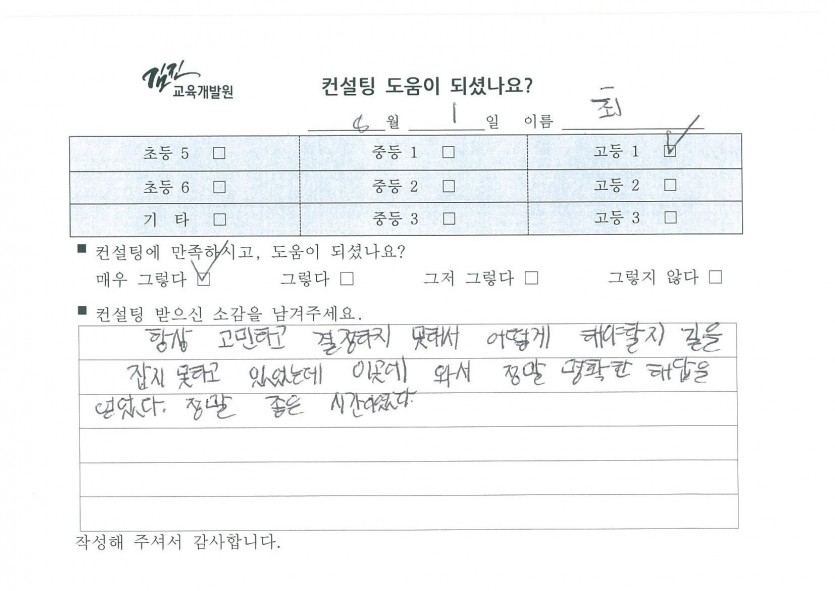 김진
교육개발원
컨설팅 도움이 되셨나요?
6 월 1 일 이름 최
초등 5 □ 중등 1 □ 고등 1 ☑
초등 6 □ 중등 2 □ 고등 2 □
기 타 □ 중등 3 □ 고등 3 □
■ 컨설팅에 만족하시고, 도움이 되셨나요?
매우 그렇다 ☑ 그렇다 □ 그저 그렇다 □ 그렇지 않다 □
■ 컨설팅 받으신 소감을 남겨주세요.
항상 고민하고 결정하지 못해서 어떻게 해야할지 길을
잡지 못하고 있었는데 이곳에 와서 정말 명확한 해답을
얻었다. 정말 좋은 시간이였다.
작성해 주셔서 감사합니다.